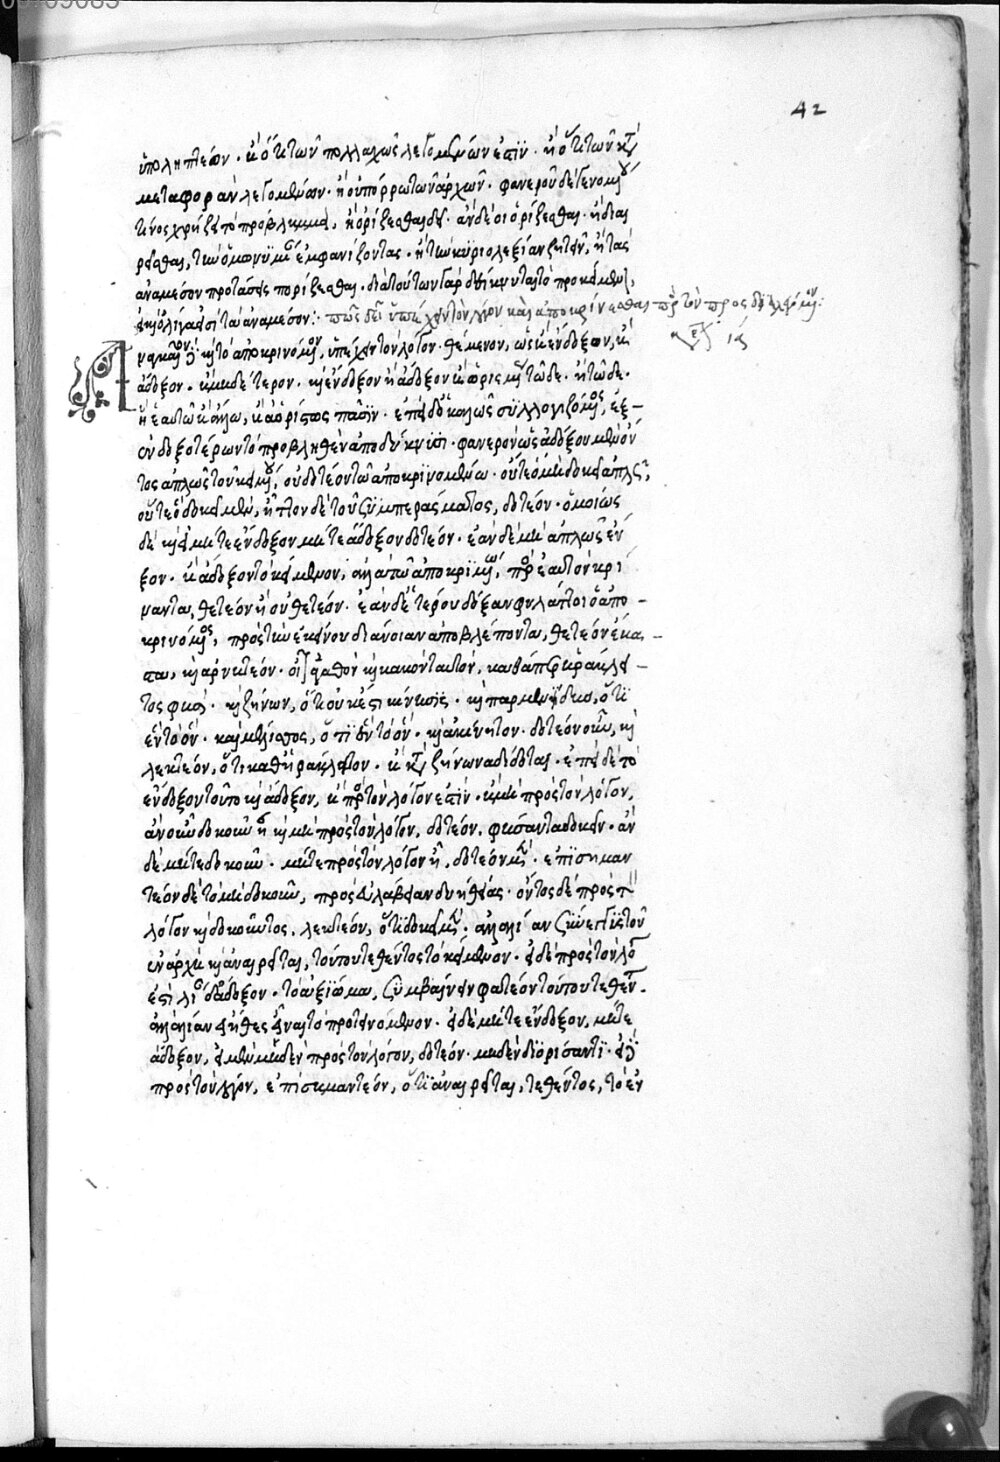 42
ὑποληπτέον · ἢ ὅτι τῶν πολλαχῶς λεγομένων ἐστὶν · ἢ ὅτι τῶν κατὰ
μεταφορὰν λεγομένων · ἢ οὐ πόρρω τῶν ἀρχῶν · φανεροῦ δὲ γενομένου
τίνος χρήζει τὸ πρόβλημα, ἢ ὁρίζεσθαι δεῖ · ἢ διαι
ρεῖσθαι, τὴν ὁμωνυμίαν ἐμφανίζοντας · ἢ τὴν κυριολεξίαν ζητεῖν, ἢ τὰς
ἀναμέσον προτάσεις πορίζεσθαι · διὰ τούτων γὰρ δείκνυται τὸ προκείμενον,
πῶς δεῖ ὑπέχειν τὸν λόγον καὶ ἀποκρίνεσθαι πρὸς τὸν προσδιαλεγόμενον:
ναγκαῖον καὶ τὸ ἀποκρινόμενον, ὑπέχειν τὸν λόγον · θέμενον, ὡς ἢ ἔνδοξον, ἢ
ἄδοξον · ἢ μηδέτερον · καὶ ἔνδοξον ἢ ἄδοξον ἢ ὡρισμένως τῷδε · ἢ τῷδε ·
ἢ ἑαυτῷ ἢ ἄλλῳ, ἢ ἀορίστως πᾶσιν · ἐπεὶ δὲ ὁ καλῶς συλλογιζόμενος, ἐξ
ἐνδοξοτέρων τὸ προβληθὲν ἀποδείκνυσι · φανερὸν ὡς ἀδόξου μὲν ὄν
τος ἁπλῶς τοῦ κειμένου, οὐ δοτέον τῷ ἀποκρινομένῳ · οὔτε ὃ μὴ δοκεῖ ἁπλῶς,
οὔτε ὃ δοκεῖ μὲν, ἧττον δὲ τοῦ συμπεράσματος, δοτέον · ὁμοίως
δὲ καὶ εἰ μήτε ἔνδοξον μήτε ἄδοξον δοτέον · ἐὰν δὲ μὴ ἁπλῶς ἔν
ξον · ἢ ἄδοξον τὸ κείμενον, ἀλλὰ τῷ ἀποκρινομένῳ, πρὸς ἑαυτὸν κρί
ναντα, θετέον ἢ οὐ θετέον · ἐὰν δὲ ἑτέρου δόξαν φυλάττοι ὁ ἀπο
κρινόμενος, πρὸς τὴν ἐκείνου διάνοιαν ἀποβλέποντα, θετέον ἕκα
στα, καὶ ἀρνητέον · οἷον ἀγαθὸν καὶ κακὸν ταυτόν, καθάπερ ἡράκλει
τος φησί · καὶ ζήνων, ὅτι οὐκ ἔστι κίνησις · καὶ παρμενίδης, ὅτι
ἓν τὸ ὄν · καὶ μέλισσος, ὅτι ἓν τὸ ὄν · καὶ ἀκίνητον · δοτέον οὖν, καὶ
λεκτέον, ὅτι καθ' ἡράκλειτον · ἢ κατὰ ζήνωνα δίδοται · ἐπεὶ δὲ τὸ
ἔνδοξον τοῦτο καὶ ἄδοξον, ἢ πρὸς τὸν λόγον ἐστὶν · ἢ μὴ πρὸς τὸν λόγον,
ἂν οὖν δοκοῦν ᾖ καὶ μὴ πρὸς τὸν λόγον, δοτέον, φήσαντα δοκεῖν · ἂν
δὲ μήτε δοκοῦν · μήτε πρὸς τὸν λόγον ᾖ, δοτέον μὲν · ἐπισημαν
τέον δὲ τὸ μὴ δοκοῦν, πρὸς εὐλάβειαν εὐηθείας · ὄντος δὲ πρὸς τὸν
λόγον καὶ δοκοῦντος, λεκτέον, ὅτι δοκεῖ μὲν · ἀλλὰ λίαν σύνεγγυς τοῦ
ἐν ἀρχῇ καὶ ἀναιρεῖται, τούτου τεθέντος τὸ κείμενον · εἰ δὲ πρὸς τὸν λόγον
ἐστὶ λίαν δ' ἄδοξον · τὸ ἀξίωμα, συμβαίνειν φατέον τούτου τεθέντος ·
ἀλλὰ λίαν εὔηθες εἶναι τὸ προτεινόμενον · εἰ δὲ μήτε ἔνδοξον, μήτε
ἄδοξον, εἰ μὲν μηδὲν πρὸς τὸν λόγον, δοτέον · μηδὲν διορίσαντι · εἰ δὲ
πρὸς τὸν λόγον, ἐπισημαντέον, ὅτι ἀναιρεῖται, τεθέντος, τὸ ἐν